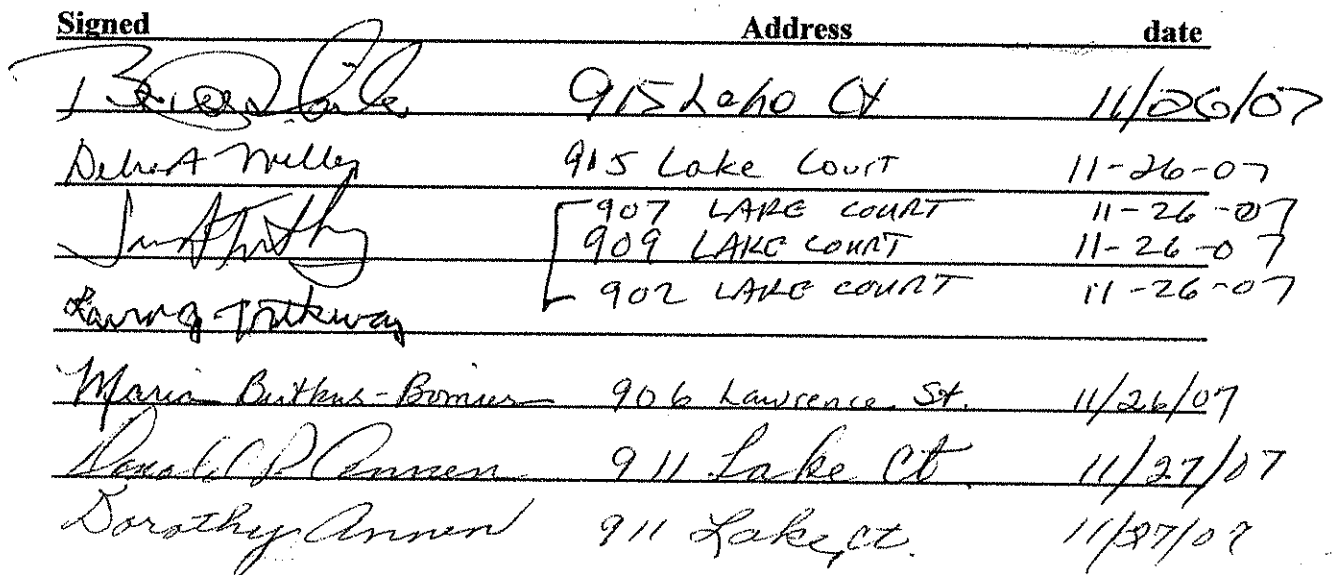 Signed Address date
915 Lake Ct 11/26/07
Miller 915 Lake Court 11-26-07
907 LAKE COURT 11-26-07
909 LAKE COURT 11-26-07
902 LAKE COURT 11-26-07
Maria Butkus-Bomier 906 Lawrence St. 11/26/07
Donald P Annen 911 Lake Ct. 11/27/07
Dorothy Annen 911 Lake, Ct. 11/27/07